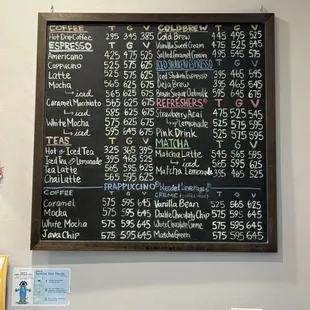 COFFEE T G V
Hot Drip Coffee 295 345 385
ESPRESSO T G V
Americano 425 475 525
Cappuccino 525 575 625
Latte 525 575 625
Mocha 565 625 675
iced 565 625 675
Caramel Macchiato 565 625 675
iced 565 625 675
White Mocha 575 625 675
iced 565 625 675
TEAS T G V
Hot & Iced Tea 325 365 395
Iced Tea & Lemonade 395 465 525
Tea Latte 565 595 625
Chai Latte 565 595 625
COLD BREW T G V
Cold Brew 445 495 525
Vanilla Sweet Cream 495 545 575
Salted Caramel Cream 495 545 575
ICED SHAKEN ESPRESSO T G V
Iced Shaken Espresso 395 465 545
Brown Sugar Oatmilk
REFRESHERS T G V
Strawberry Acai 475 525 545
Lemonade 525 575 595
Pink Drink 525 575 595
MATCHA T G V
Matcha Latte 545 595 625
iced 565 595 625
Matcha Lemonade 395 465 525
FRAPPUCCINO blended beverage
COFFEE T G V
Caramel 575 595 645
Mocha 575 595 645
White Mocha 575 595 645
Java Chip 575 595 645
CREME T G V
Vanilla Bean 525 565 625
Double Chocolaty Chip 575 595 645
White Chocolate Creme 575 595 645
Matcha Green 575 595 645